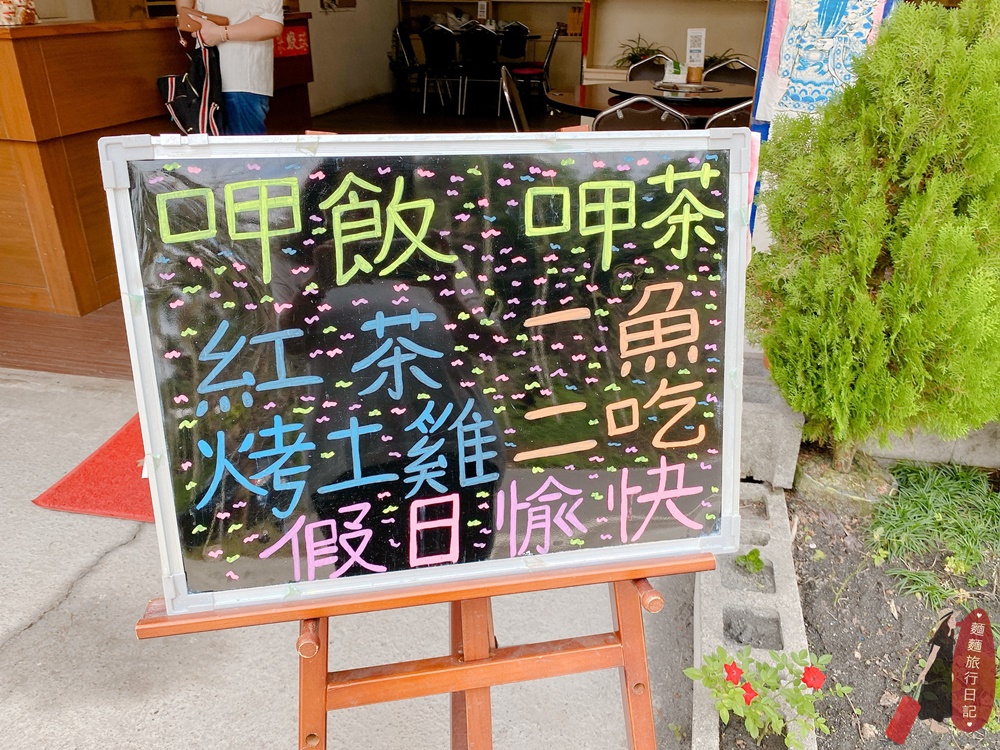 呷飲 呷茶
紅茶 一魚
烤土雞 二吃
假日愉快
麵麵旅行日記